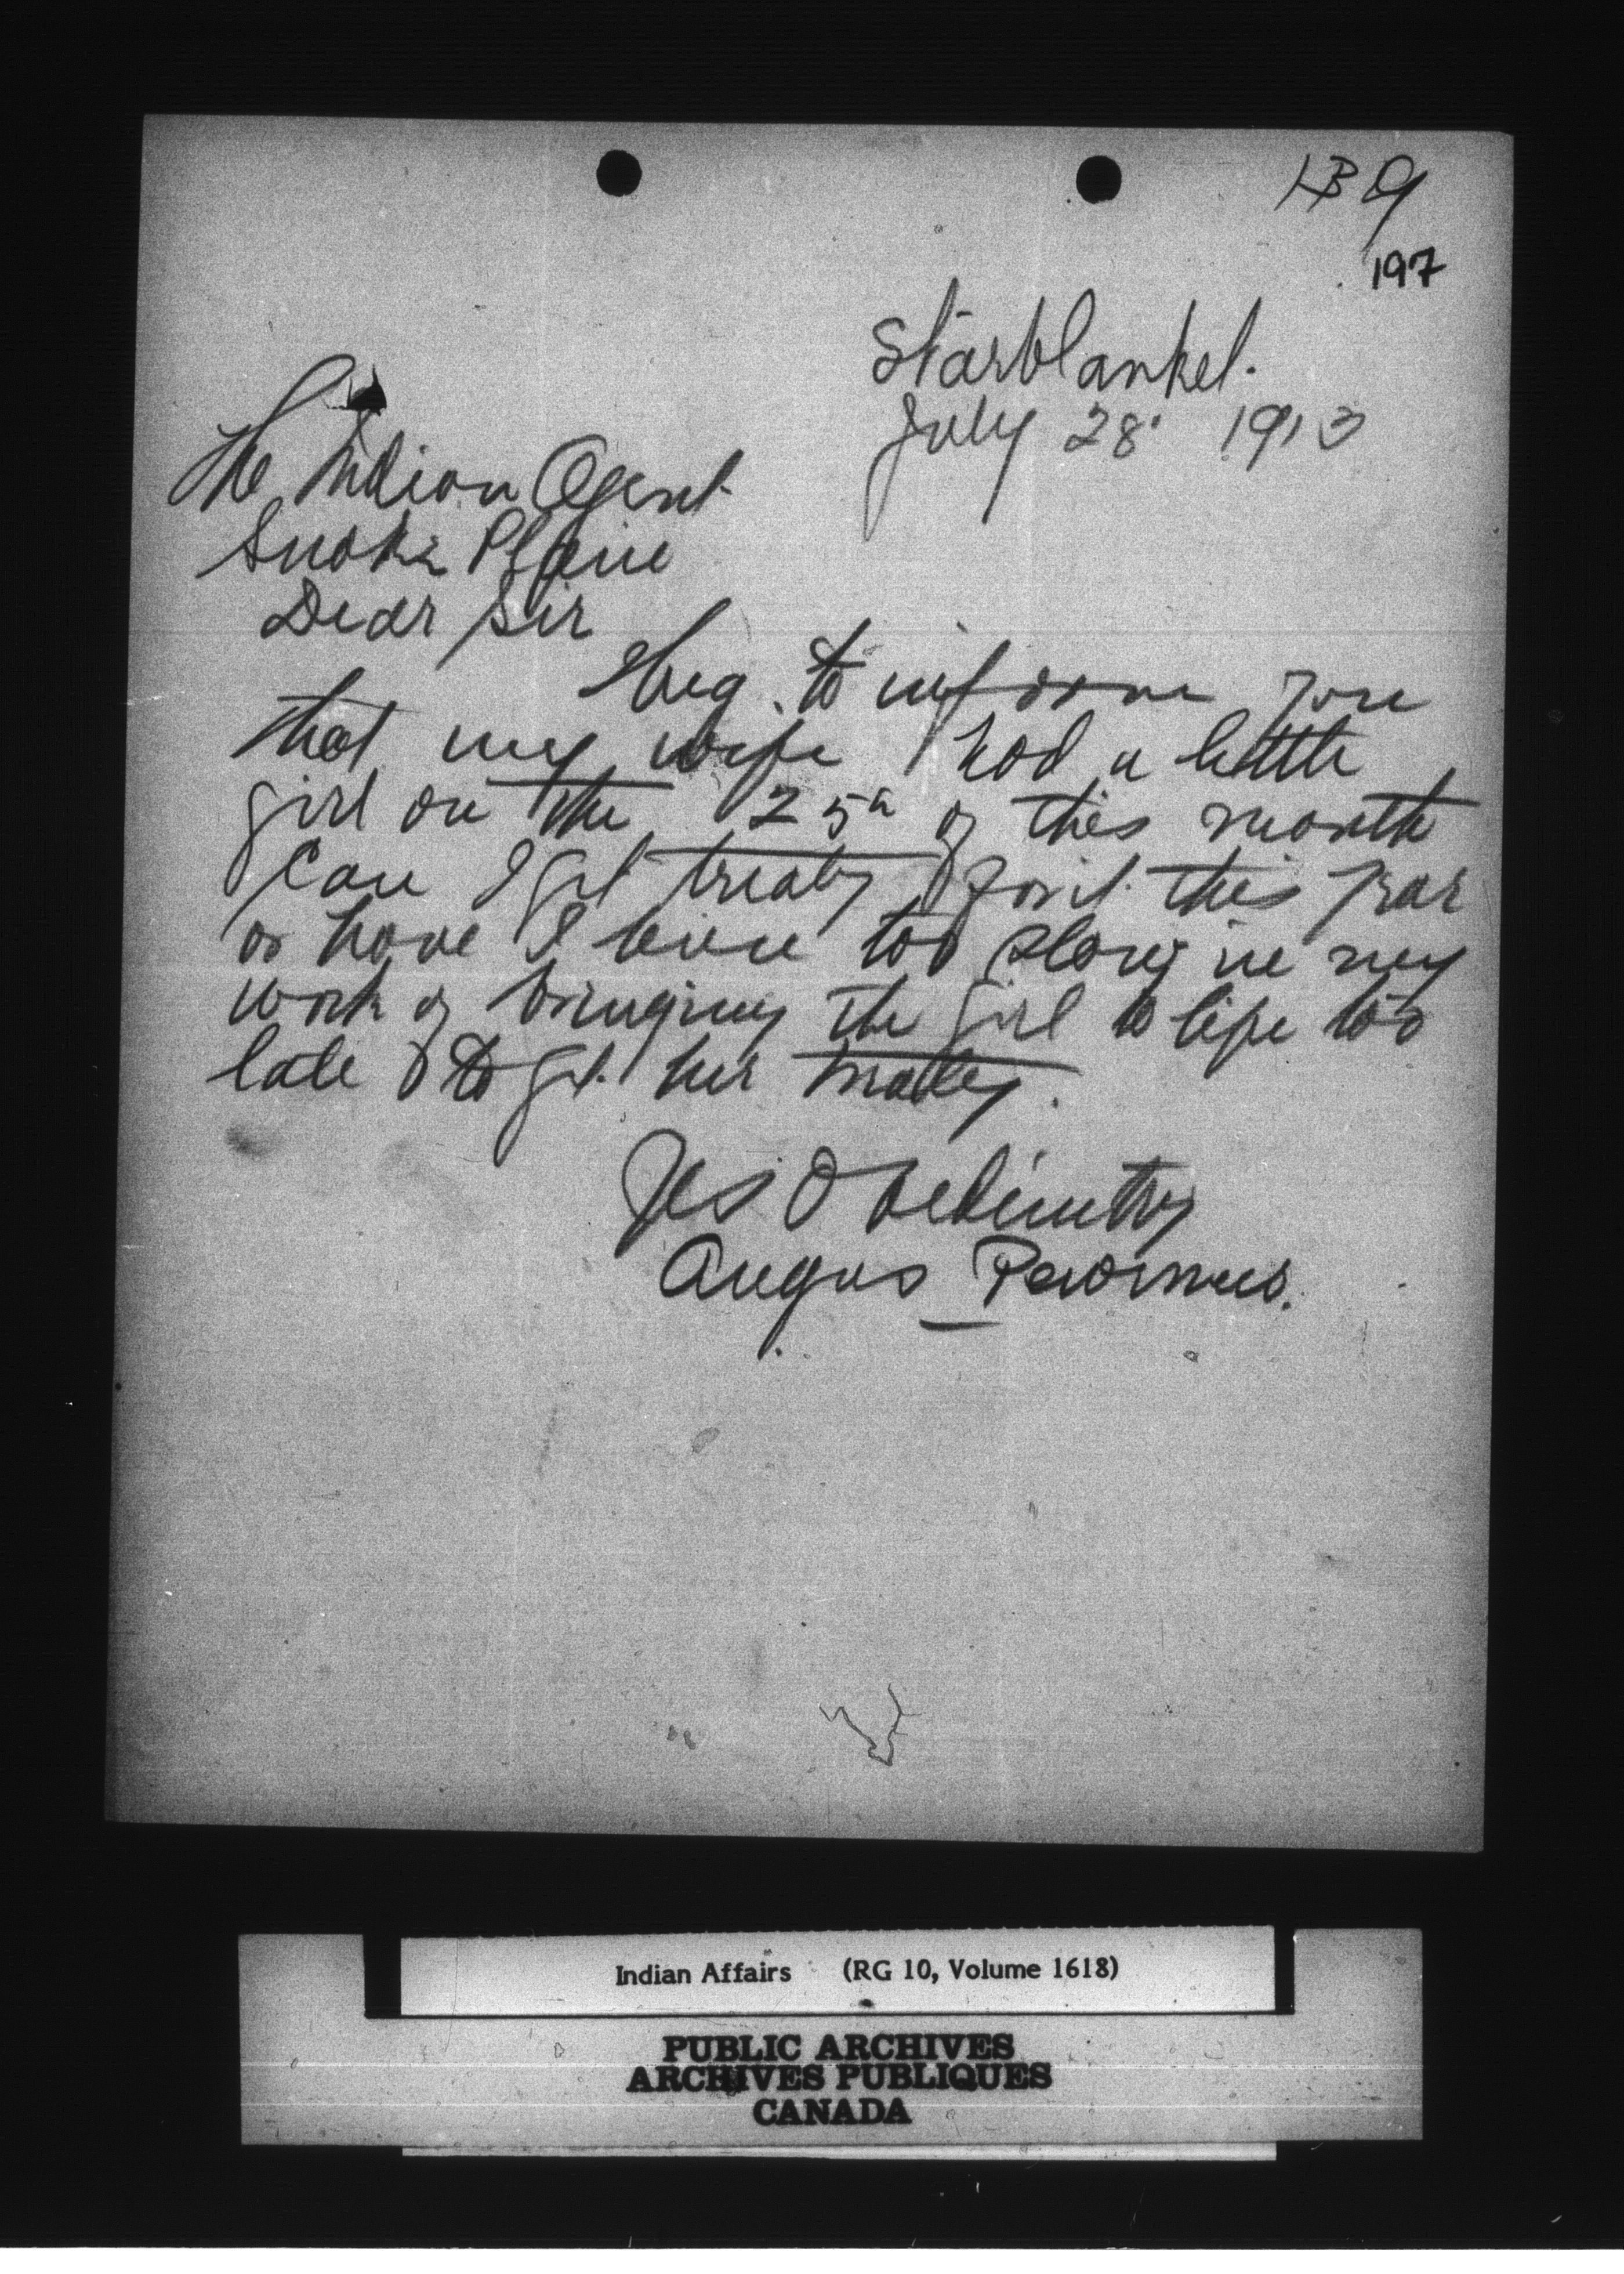 197
Starblanket.
July 28 1913
The Indian Agent
Snake Plaine
Dear Sir
I beg to inform you
that my wife had a little
girl on the 25th of this month
Can I get treaty for it this year
or have I been too slow in my
work of bringing the girl to life too
late to get her treaty.
Yrs Obediently
Angus
Indian Affairs (RG 10, Volume 1618)
PUBLIC ARCHIVES
ARCHIVES PUBLIQUES
CANADA